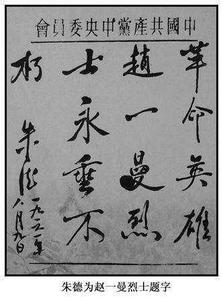 中國共產黨中央委員會
革命英雄
趙一曼烈
士永垂不
朽
朱德
一九六二年
八月九日
朱德为赵一曼烈士题字